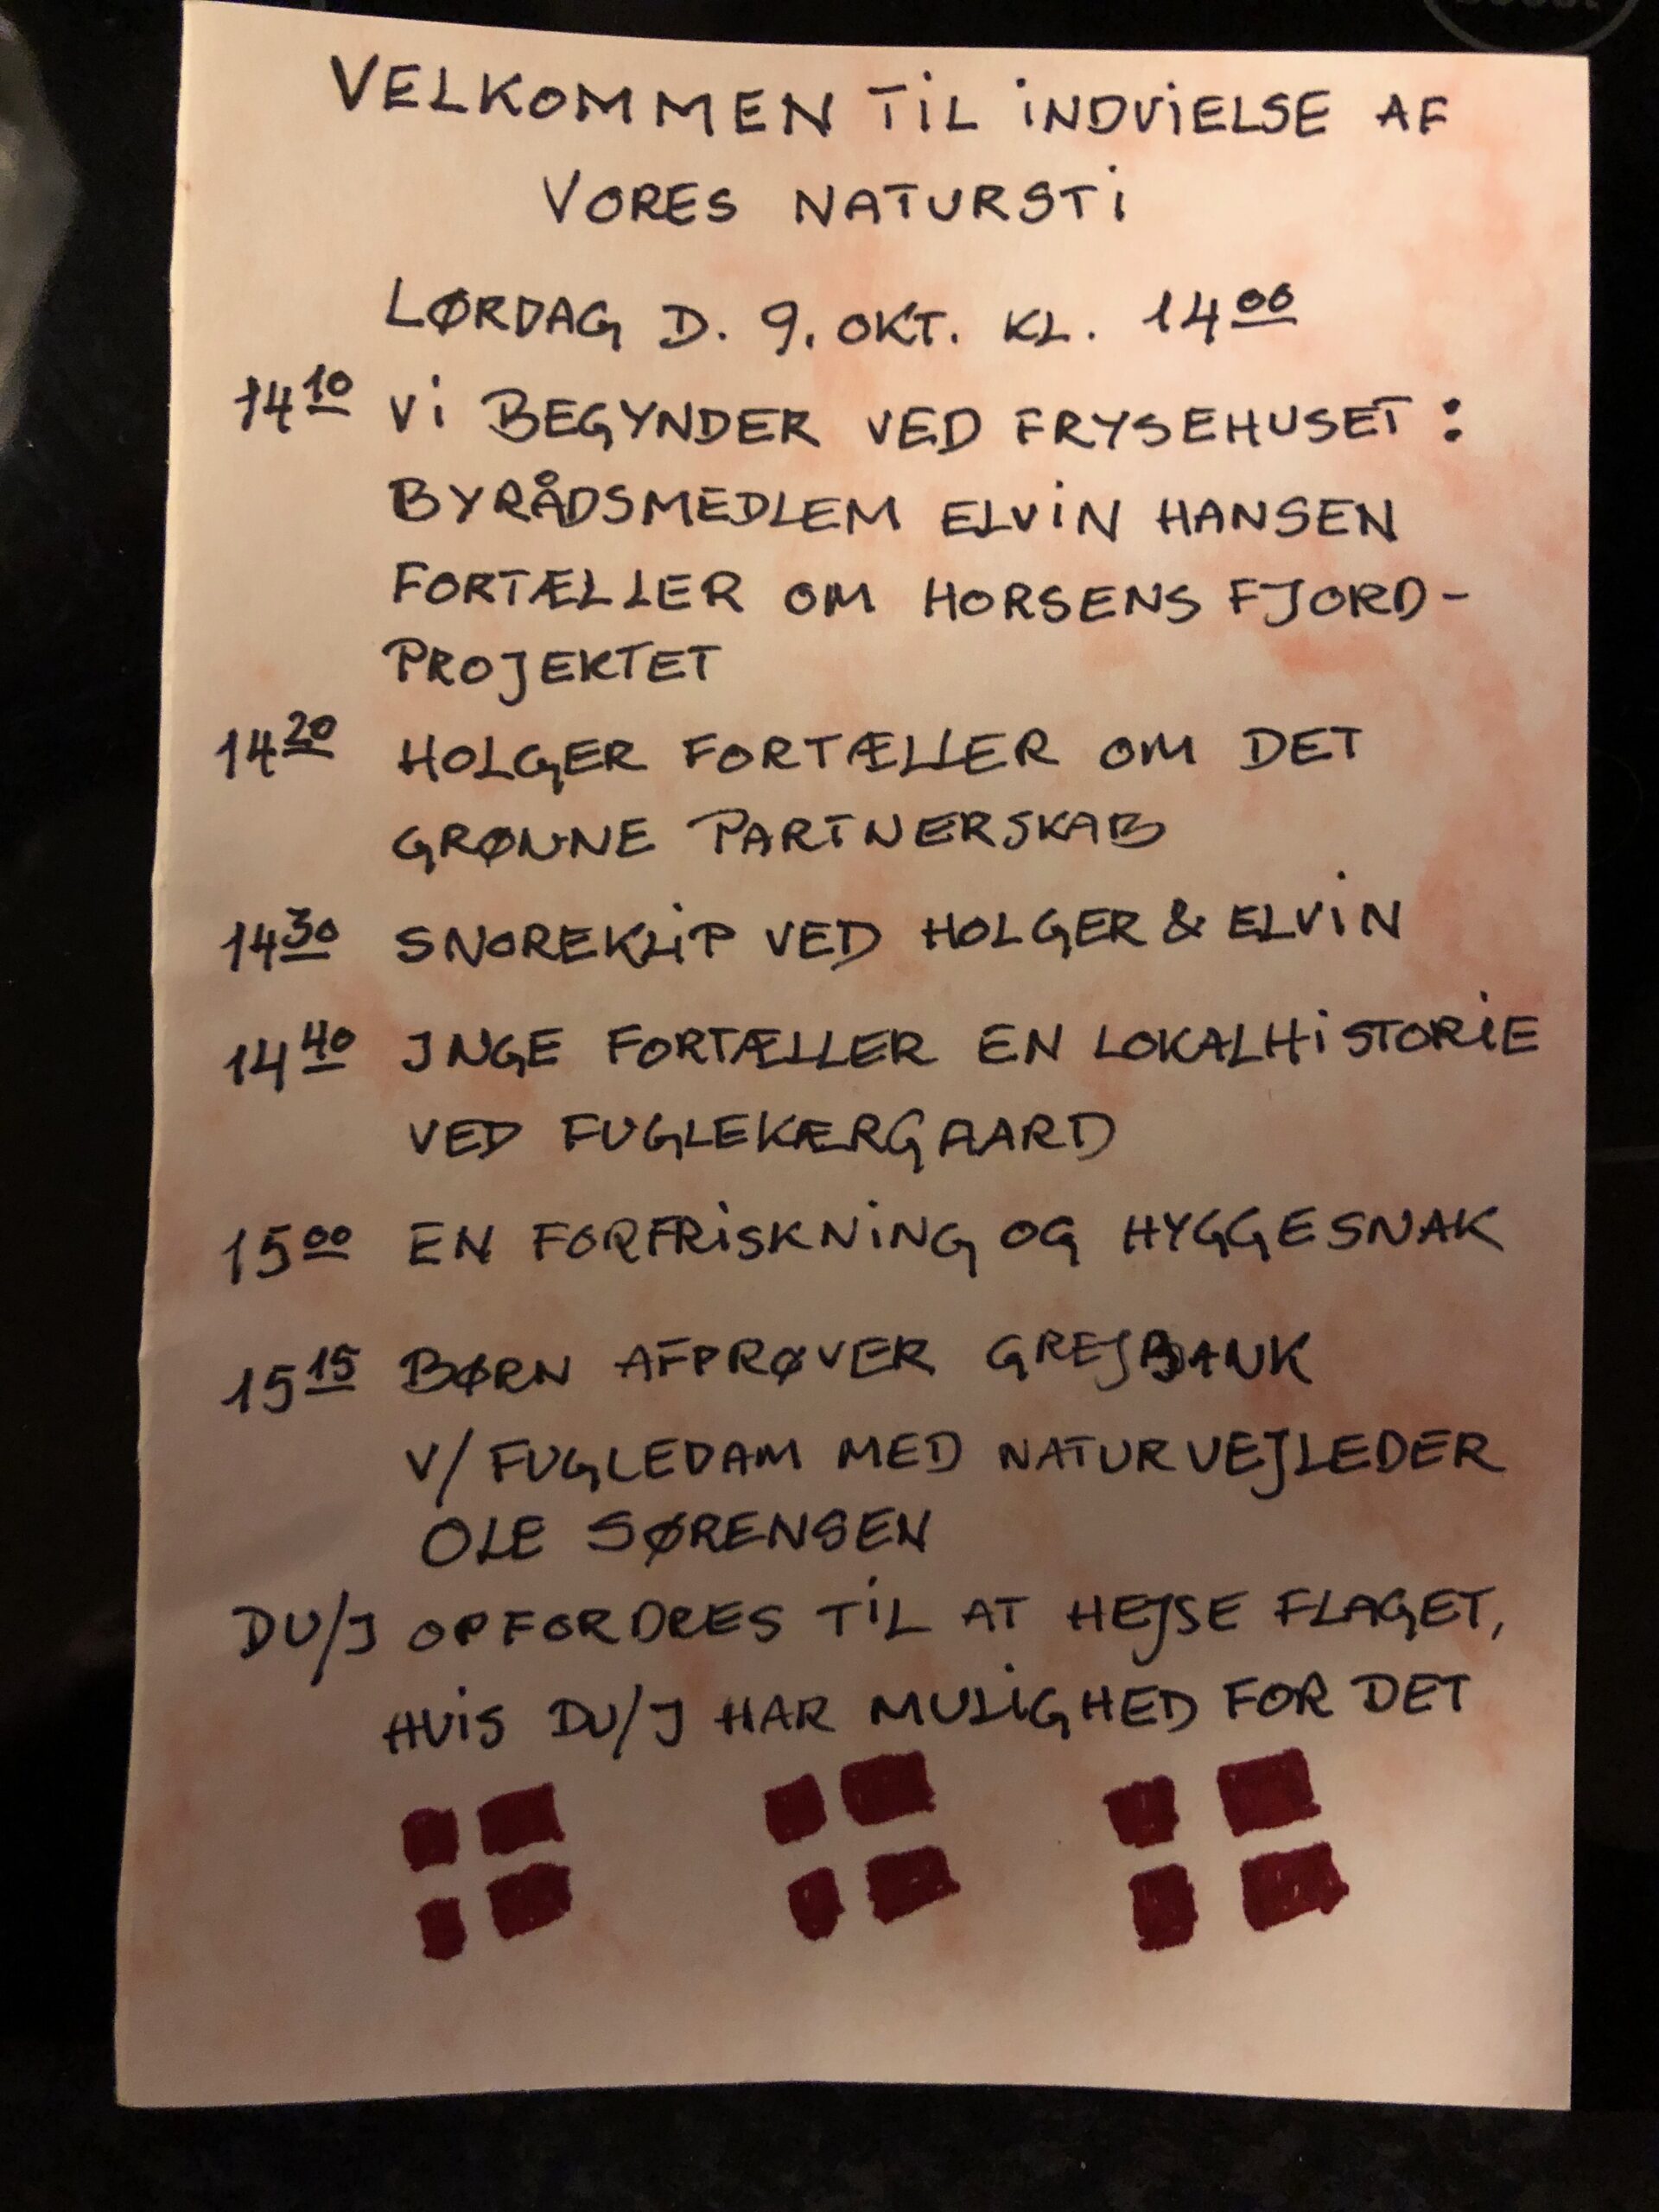 VELKOMMEN TIL INDVIELSE AF
VORES NATURSTI
LØRDAG D. 9. OKT. KL. 14⁰⁰
14¹⁰ VI BEGYNDER VED FRYSEHUSET :
BYRÅDSMEDLEM ELVIN HANSEN
FORTÆLLER OM HORSENS FJORD-
PROJEKTET
14²⁰ HOLGER FORTÆLLER OM DET
GRØNNE PARTNERSKAB
14³⁰ SNOREKLIP VED HOLGER & ELVIN
14⁴⁰ INGE FORTÆLLER EN LOKALHISTORIE
VED FUGLEKÆRGAARD
15⁰⁰ EN FORFRISKNING OG HYGGESNAK
15¹⁵ BØRN AFPRØVER GREJBANK
V/ FUGLEDAM MED NATURVEJLEDER
OLE SØRENSEN
DU/I OPFORDRES TIL AT HEJSE FLAGET,
HVIS DU/I HAR MULIGHED FOR DET